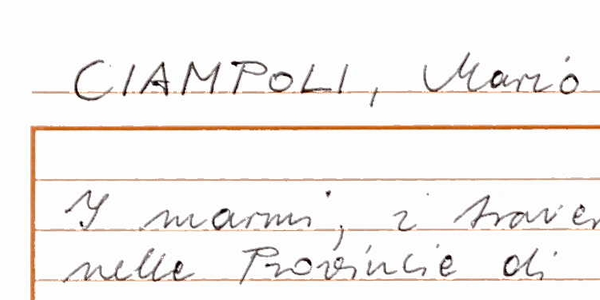 CIAMPOLI, Mario
I marmi, i traver
nelle Provincie di